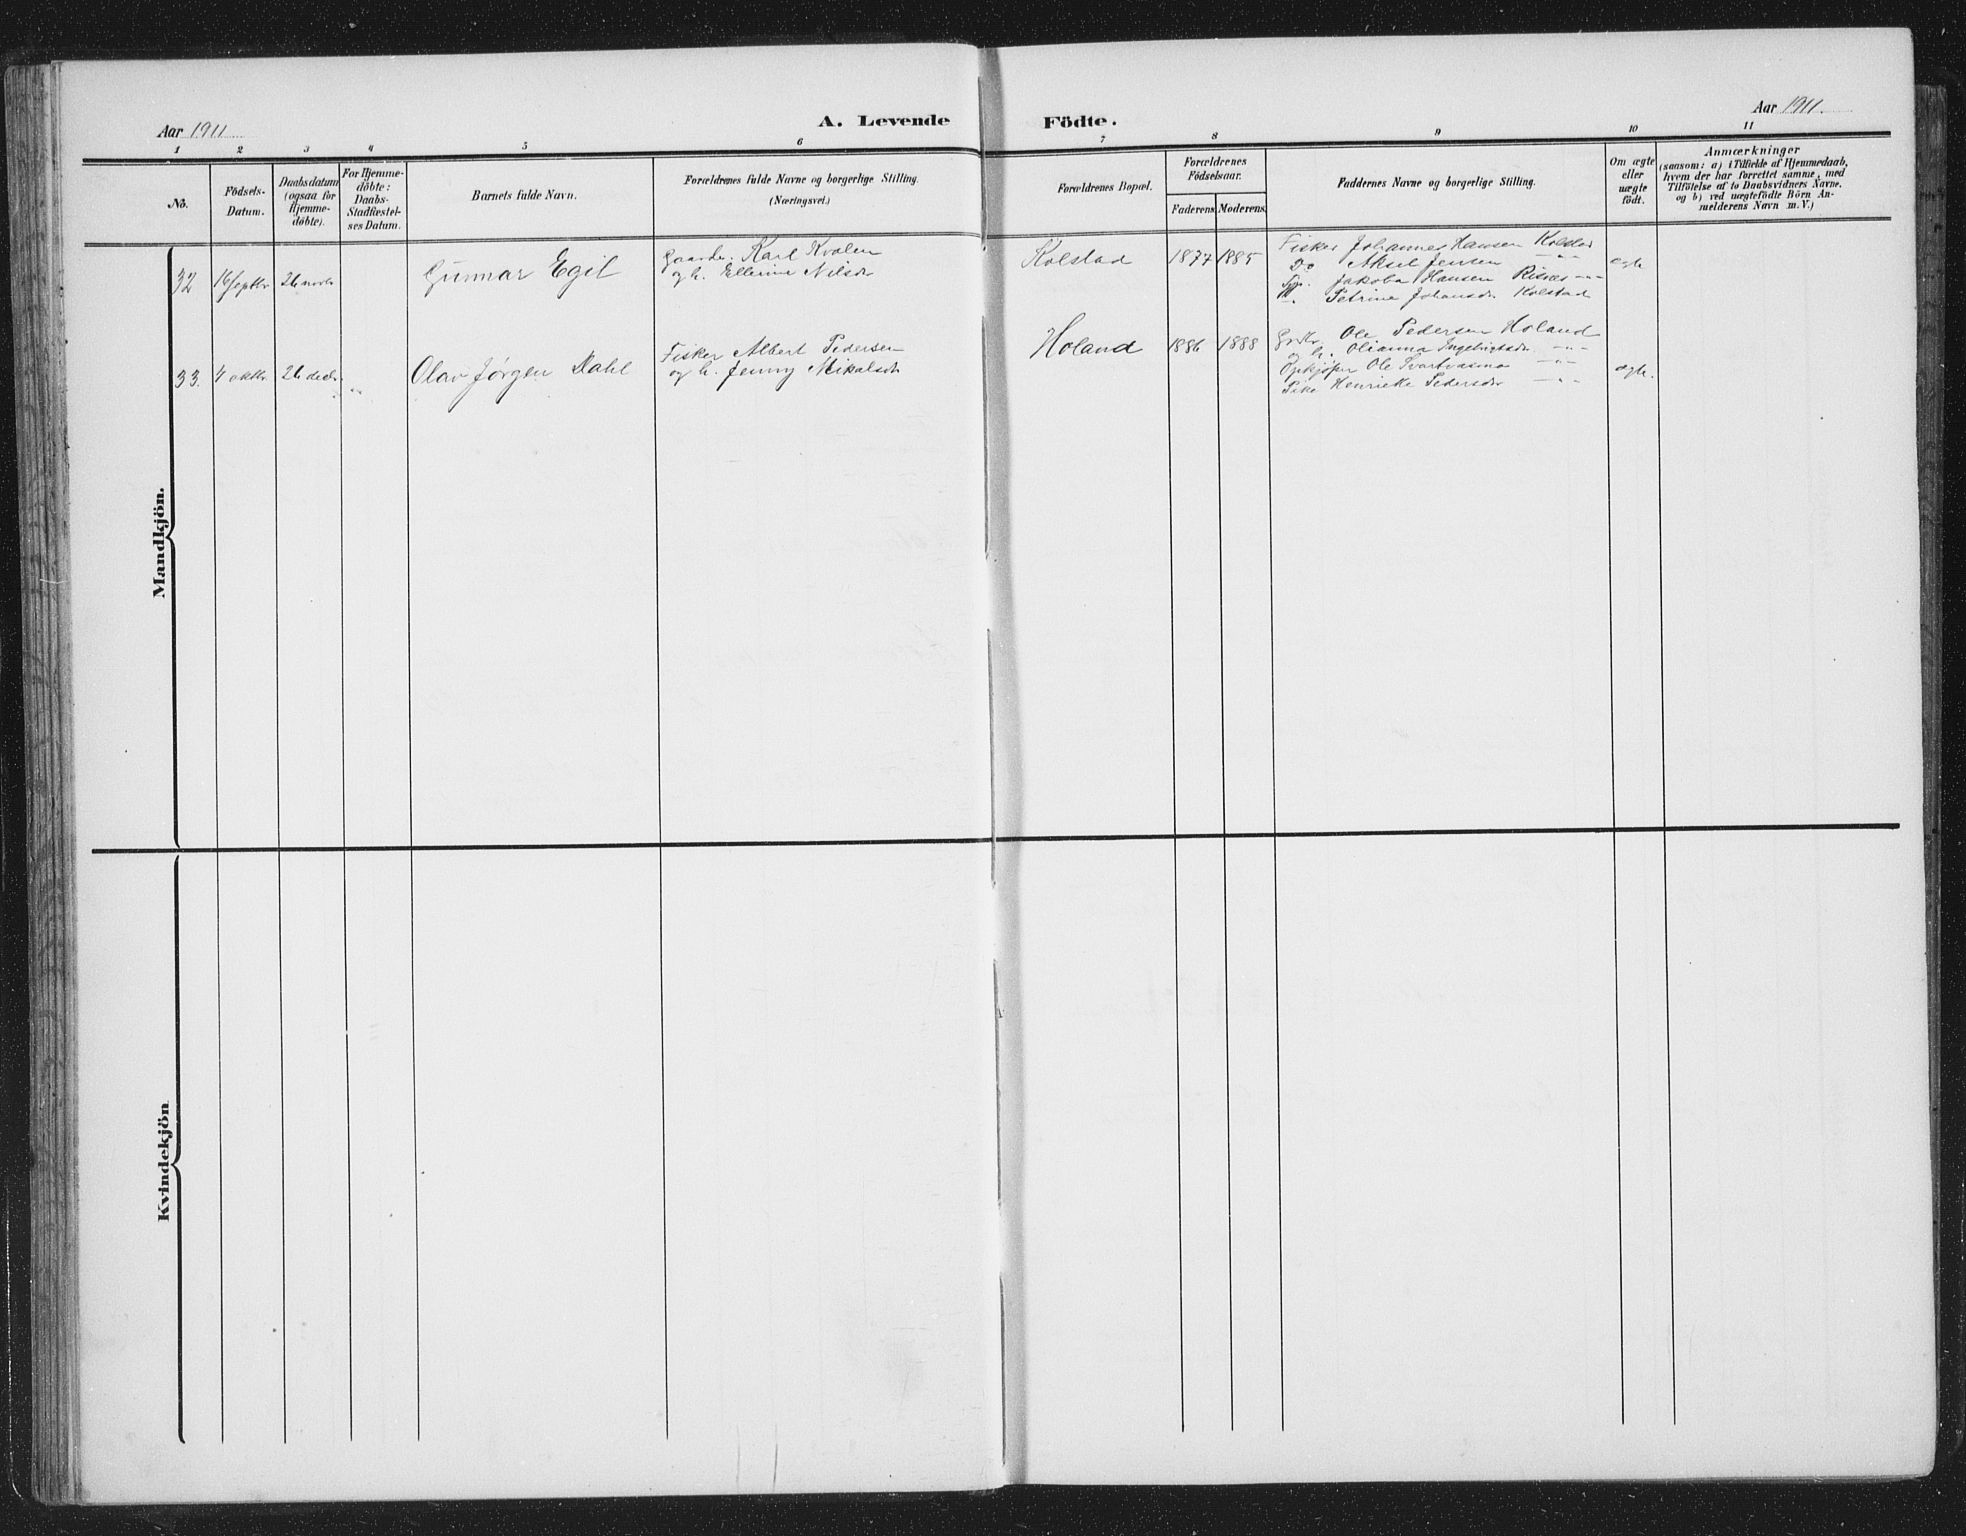 Aar 1911
A. Levende
Födte.
Aar 1911.
1 2 3 4 5 6 7 8 9 10 11
No.
Födsels-
Datum.
Daabsdatum
(ogsaa for
Hjemme-
döbte).
For Hjemme-
döbte:
Daabs-
Stadfæstel-
ses Datum.
Barnets fulde Navn.
Forældrenes fulde Navne og borgerlige Stilling.
(Næringsvei.)
Forældrenes Bopæl.
Forældrenes
Födselsaar.
Faderens
Moderens.
Faddernes Navne og borgerlige Stilling.
Om ægte
eller
uægte
födt.
Anmærkninger
(saasom: a) i Tilfælde af Hjemmedaab,
hvem der har forrettet samme, med
Tilföielse af to Daabsvidners Navne.
og b) ved uægtefödte Börn An-
melderens Navn m. V.)
Mandkjön.
32 16 septbr 26 novbr
Gunnar Egil
Gaardbr. Karl Kvalen
og h. Ellerine Nilsdr
Kolstad
1877 1885
Fisker Johannes Hansen Kolstad
Do Aksel Jensen -"-
Jakoba Hansen Risnes
Petrine Johansdr Kolstad
ægte
33. 4 oktbr. 26 decbr. "
Olav Jørgen Dahl
Fisker Albert Pedersen
og h. Jenny Mikalsdr
Holand
1886 1888
Ole Pedersen Holand
h. Olianna Ingebrigtsdr -"-
Opkjøper Ole Svartvasmo -"-
Pike Henrikke Pedersdr -"-
ægte.
Kvindekjön